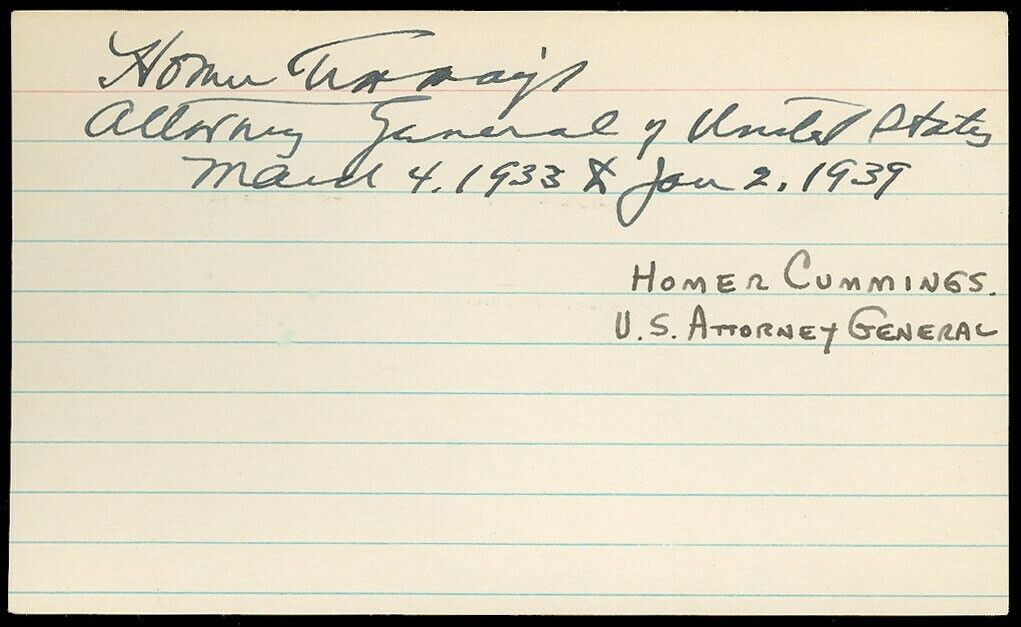 Homer Cummings
Attorney General of United States
March 4, 1933 to Jan 2, 1939
HOMER CUMMINGS.
U.S. ATTORNEY GENERAL